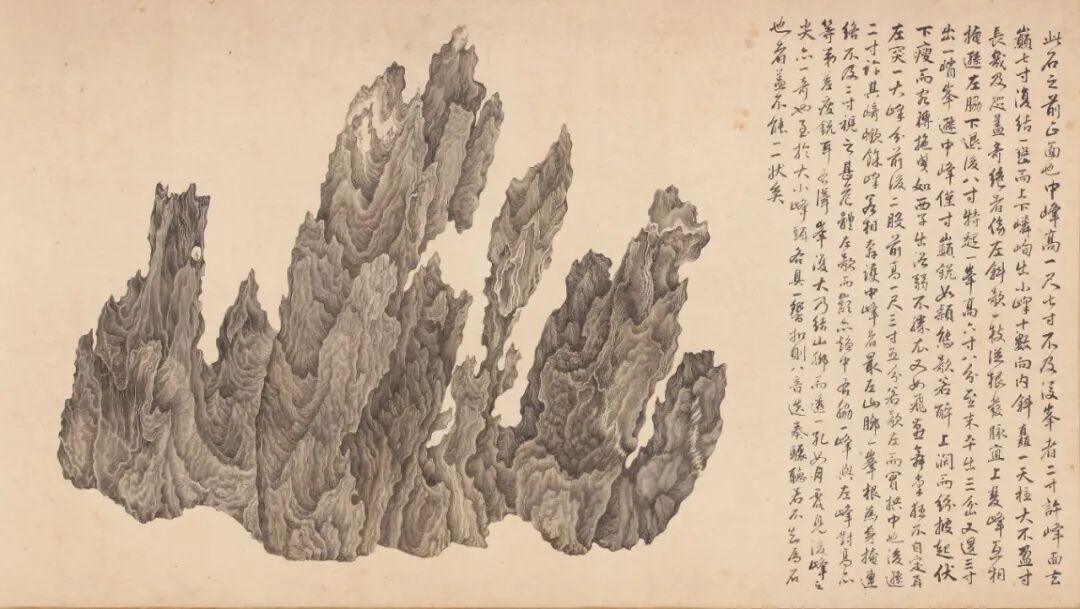 此石之前正面也中峰高一尺七寸不及後峯者二寸許峰面去
巔七寸復結一巒而上下嶙峋出小峰十數向內斜矗一天柱大不盈寸
長幾及咫蓋奇絕者像左斜欹一枝從根發脈直上與峰互相
掩遜左脇下退後八寸特起一峯高六寸八分至末平出三分又邊三寸
出一峭峯遜中峰僅寸巔銳如穎態欹若醉上闊而紛披起伏
下瘦而轉拖曳如西子出浴弱不勝衣又如飛燕舞掌極不自定耳
左突一大峰分前後二股前高一尺三寸五分若欹左而實拱中也後遜
二寸許其崎嶔餘峰若相奔護中峰者最左山腳一峯根為身掩連
絡不及二寸視之甚危體左欹而巔亦趨中右脇一峰與左峰對高亦
等第差瘦銳耳右峯後大乃結山腳而透一孔如月露見後峰之
尖亦一奇也至於大小峰頭各具一響扣則八音迭奏驟聽者不知為石
也者蓋不能二狀矣